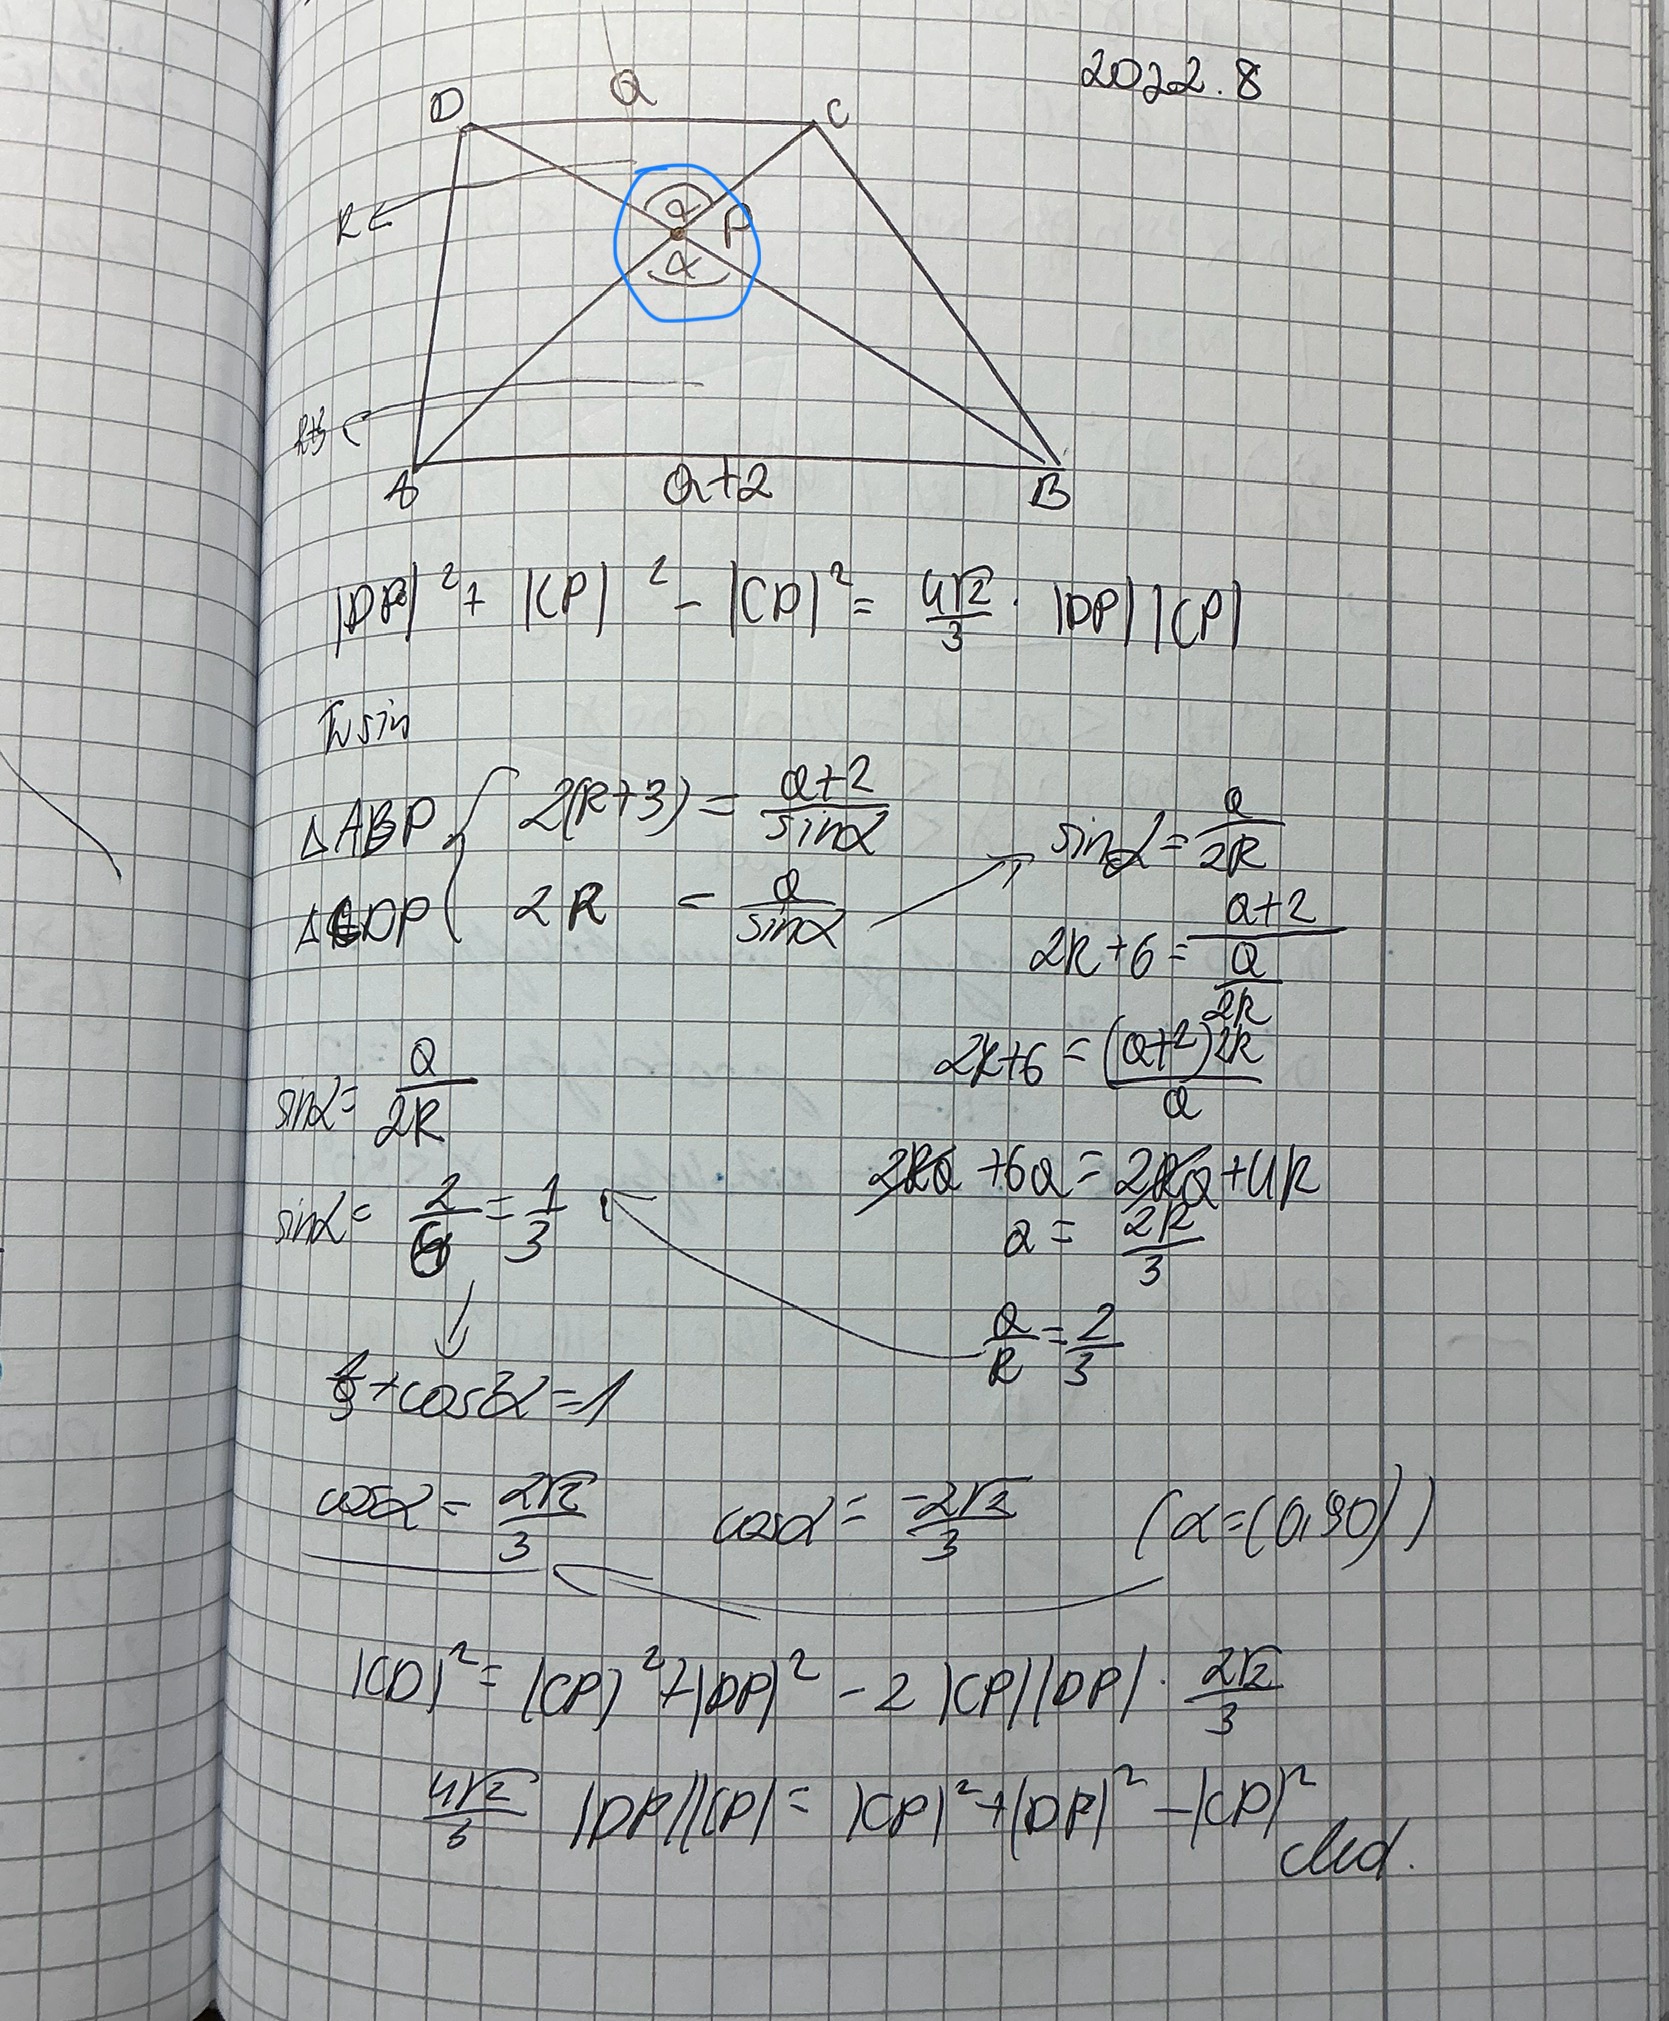 2022.8
D a C
R α P
α
R+3
A a+2 B
|DP|² + |CP|² - |CD|² = 4√2/3 · |DP||CP|
Tw sin
ΔABP { 2(R+3) = a+2/sinα
ΔCDP { 2R = a/sinα → sinα = a/2R
2R+6 = a+2/(a/2R)
2R+6 = (a+2)2R/a
sinα = a/2R
2Ra + 6a = 2Ra + 4R
sinα = 2/6 = 1/3
a = 2R/3
a/R = 2/3
+ cos²α = 1
cosα = 2√2/3 cosα = -2√2/3 (α=(0,90))
|CD|² = |CP|² + |DP|² - 2|CP||DP| · 2√2/3
4√2/3 |DP||CP| = |CP|² + |DP|² - |CD|²
ckd.